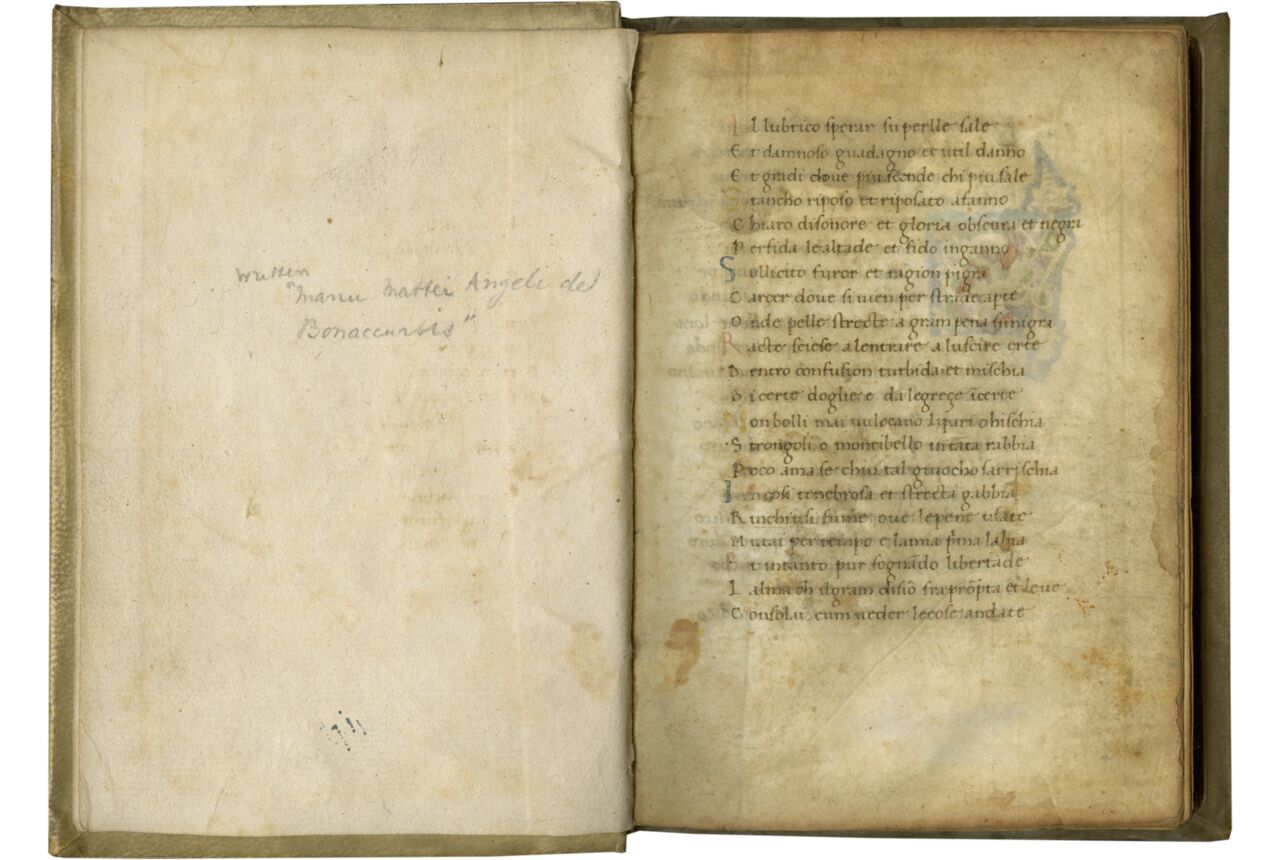 Written
"manu Mattei Angeli de
Bonaccursis"
Il lubrico sperar su perlle sale
Et damnoso guadagno et util danno
Et gradi doue piu scende chi piu sale
Stancho riposo et riposato afanno
Chiaro disonore et gloria obscura et negra
Perfida lealtade et fido inganno
Sollicito furor et ragion pigra
Carcer doue si uien per strade apte
Onde pelle strecte a gram pena si migra
Racte sciese alentrare a luscire erte
Dentro confusion turbida et mischia
Di certe doglie e dalegreçe ĩcerte
Non bolli mai uulocano lipari o hischia
Strongoli o montibello in tãta rabbia
Poco ama se chi in tal giuocho sarrischia
In cosi tenebrosa et strecta gabbia
Rinchiusi fume oue le pene usate
Mutai per tempo e la mia p̃ma labia
Et intanto pur sognãdo libertade
Lalma ch̃ il gram disio fea prõpta et leue
Consolai cum ueder le cose andate